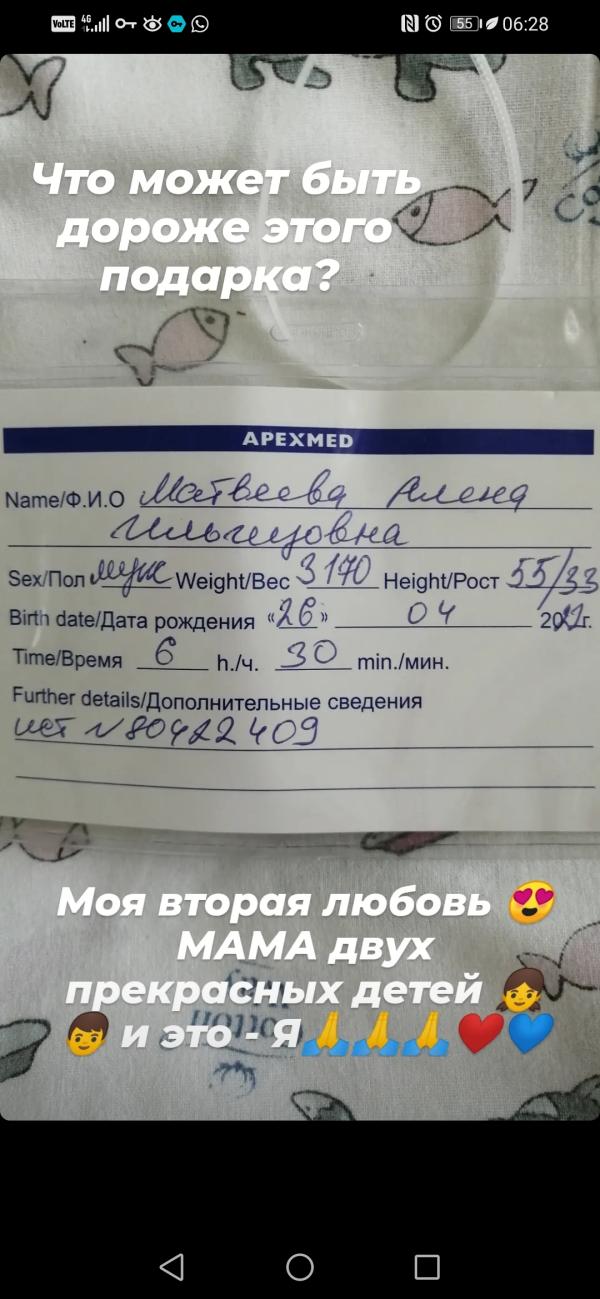 VoLTE 4G 55 06:28
Что может быть
дороже этого
подарка?
APEXMED
Name/Ф.И.О Матвеева Алена
Ильгизовна
Sex/Пол муж Weight/Вес 3170 Height/Рост 55/33
Birth date/Дата рождения «26» 04 2022г.
Time/Время 6 h./ч. 30 min./мин.
Further details/Дополнительные сведения
ист N 80422409
Моя вторая любовь 😍
МАМА двух
прекрасных детей 👧
👦 и это - Я🙏🙏🙏❤️💙
cotton